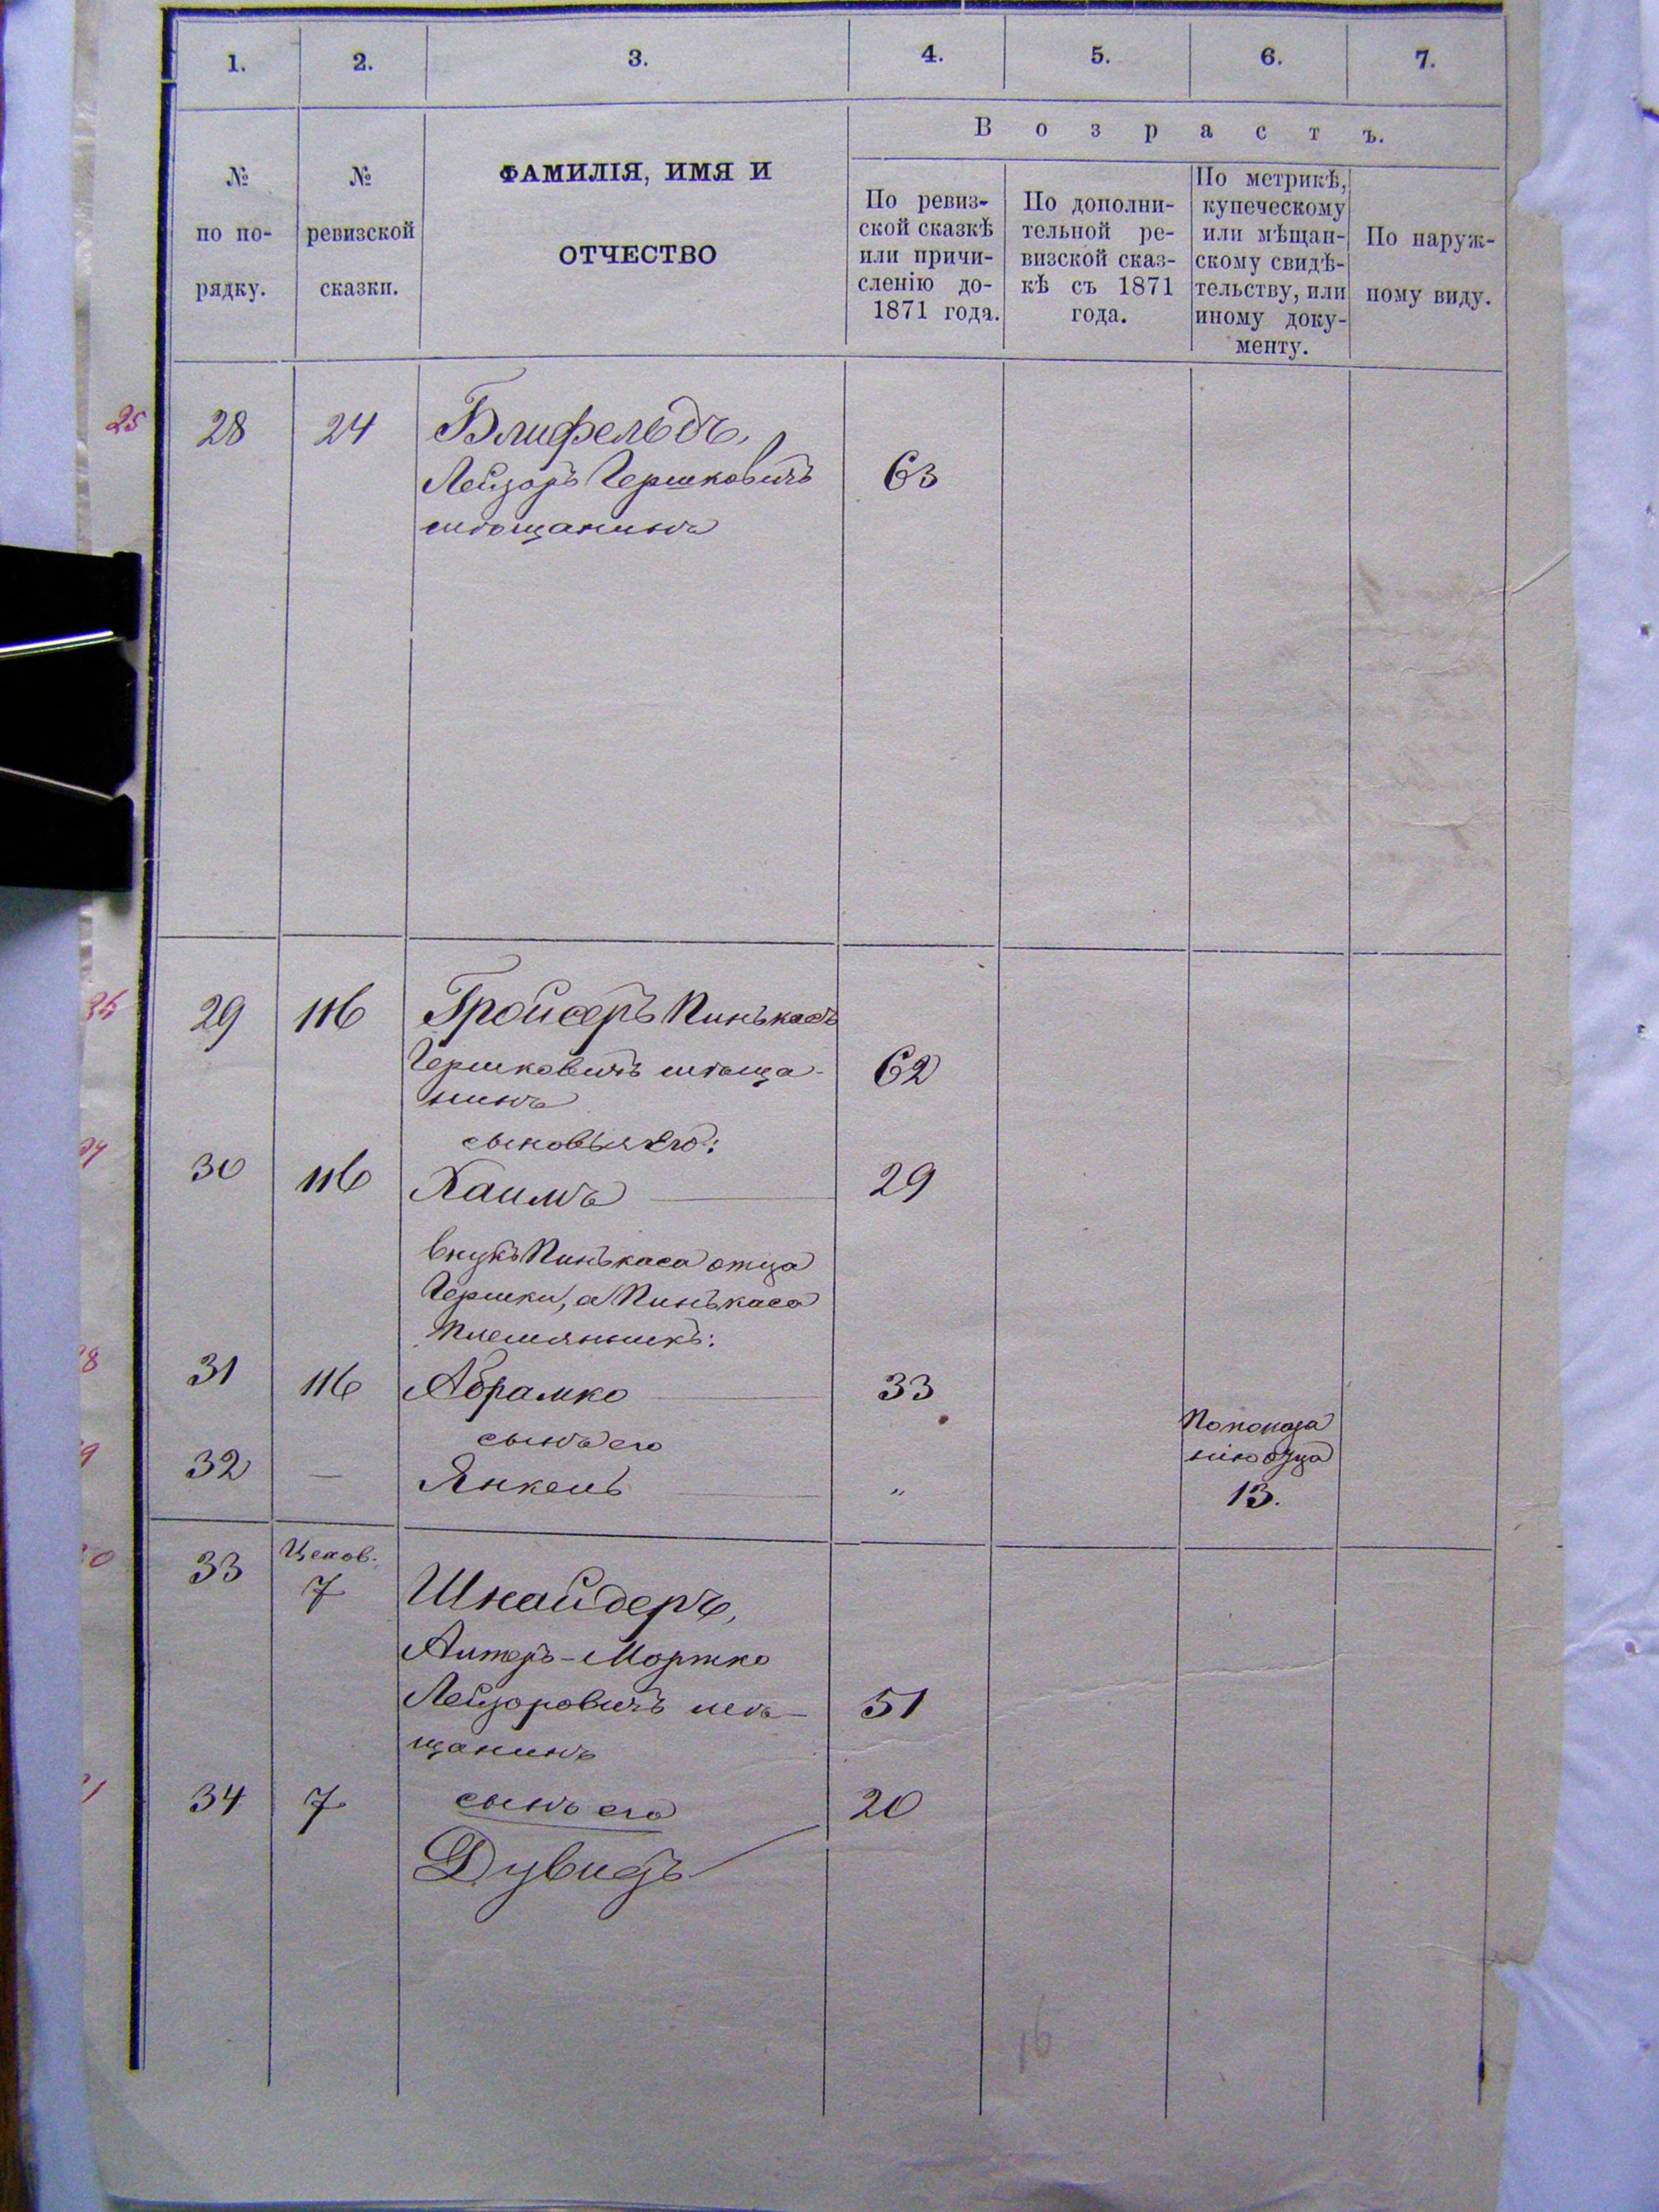 1. 2. 3. 4. 5. 6. 7.
№ по по-рядку.
№ ревизской сказки.
ФАМИЛІЯ, ИМЯ И
ОТЧЕСТВО
Возрастъ.
По ревиз-
ской сказкѣ
или причи-
сленію до
1871 года.
По дополни-
тельной ре-
визской сказ-
кѣ съ 1871
года.
По метрикѣ,
купеческому
или мѣщан-
скому свидѣ-
тельству, или
иному доку-
менту.
По наруж-
ному виду.
25 28 24 Блифельдъ,
Лейзоръ Гершковичъ 63
мѣщанинъ
26 29 116 Гройсеръ Пинькасъ
Гершковичъ мѣща- 62
нинъ
сыновья его:
30 116 Хаимъ 29
внукъ Пинькаса отца
Гершки, а Пинькаса
племянникъ:
31 116 Абрамко 33
сынъ его
32 — Янкель „
По показа
нію отца
13.
33 Цехов. 7 Шнайдеръ,
Алтеръ-Мортко
Лейзоровичъ мѣ- 51
щанинъ
34 7 сынъ его 20
Дувидъ
16